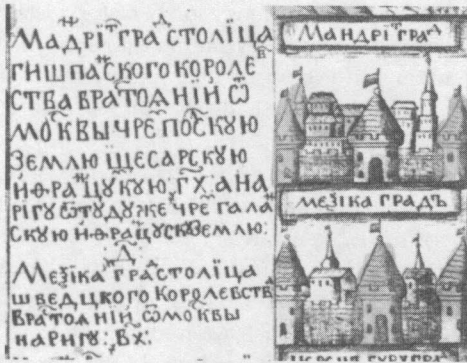 Маⷩдріⷮ граⷣ століца
гишпаⷩского королеⷡ
ства вратоднїй ѿ
москвы чреⷥ полскꙋю
землю цесарскꙋю
и ѳраⷩцꙋкꙋю: г҃х: а на
ригꙋ ѿтꙋдꙋже чреⷥ галаⷩ
скꙋю и ѳраⷩцꙋскꙋ землю:
Меѯіка граⷣ столїца
шведцкого королевств
вратоднїй ѿ москвы
на ригꙋ: в҃х:
Мандріⷮ граⷣ
меѯіка градъ